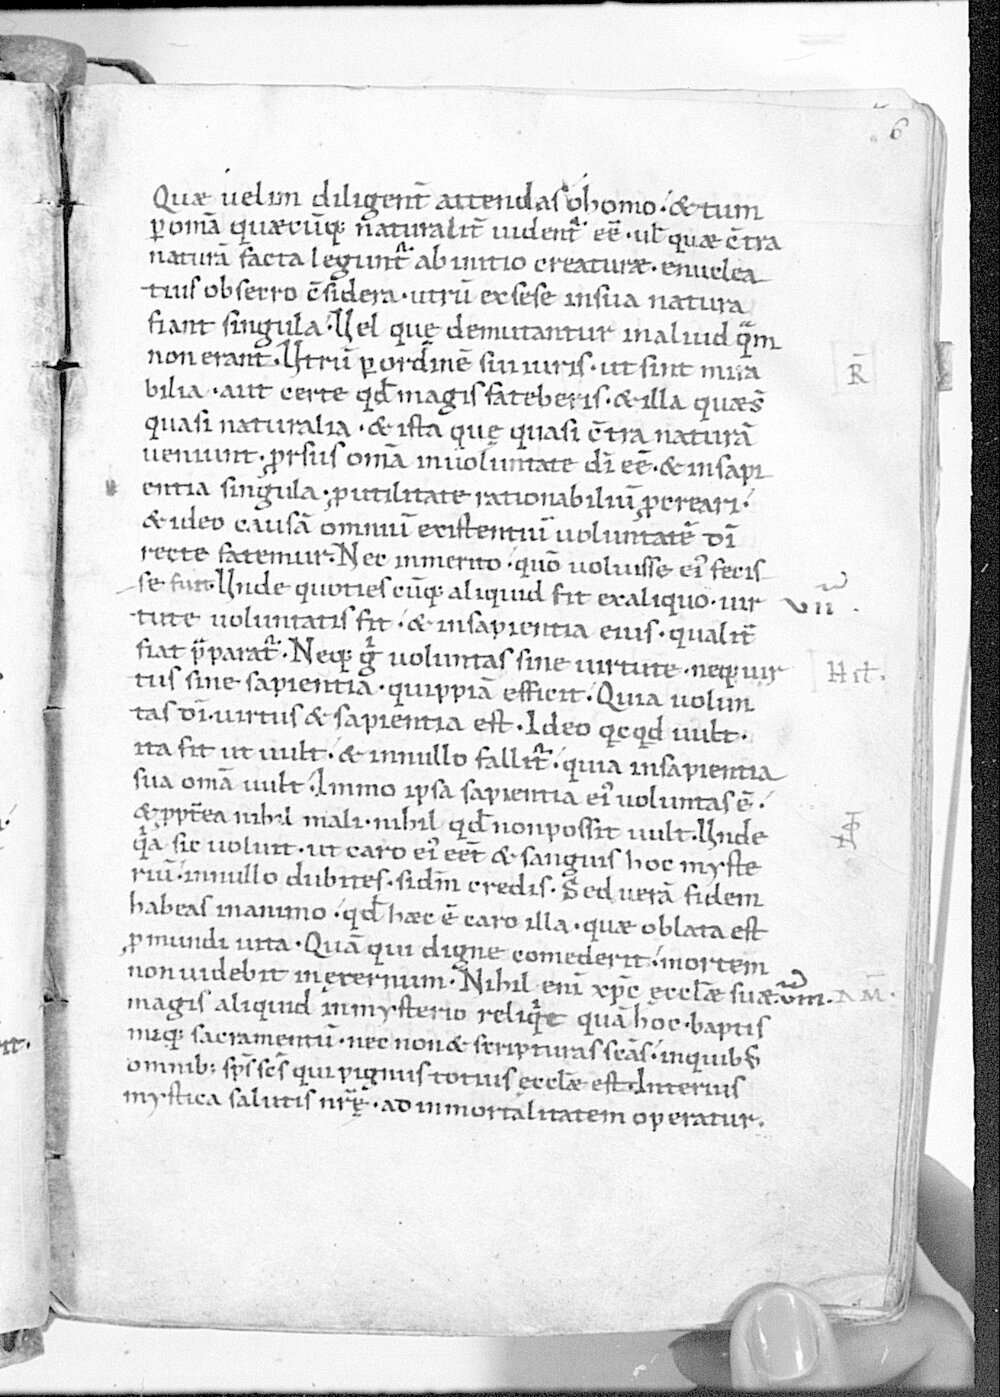 6
Quæ uelim diligenť attendas o homo · & tum
ꝑ om̄a quæcūq; naturaliť uidenť eē · ul̄ quæ c̄tra
naturā facta legunť ab initio creaturæ · enuclea
tius obsecro c̄sidera · utrū ex sese in sua natura
fiant singula · Vel quę demutantur in aliud quā
non erant · Vtrū ꝑ ordinē sui iuris · ut sint mira
R̄
bilia · aut certe qđ magis fateberis · & illa quæ s̄
quasi naturalia · & ista quę quasi c̄tra naturā
ueniunt · ꝓrsus om̄a in uoluntate dī eē · & in sapi
entia singula · ꝓ utilitate rationabiliū ꝓcreari ·
& ideo causā omniū existentiū uoluntatē dī
recte fatemur · Nec inmerito · quō uoluisse ei' fecis
se fuit · Vnde quoties cūq; aliquid fit ex aliquo · uir
VII .
tute uoluntatis fit · & in sapientia eius · qualiť
fiat p̄parať · Neq; g̊ uoluntas sine uirtute · neq; uir
tus sine sapientia · quippiā efficit · Quia uolun
tas dī · uirtus & sapientia est · Ideo qcqd uult ·
ita fit ut uult · & in nullo falliť · quia in sapientia
sua om̄a uult · Immo ipsa sapientia ei' uoluntas ē ·
& ꝓpťea nihil mali · nihil qđ non possit uult · Vnde
qa sic uoluit · ut caro ei' eēt & sanguis hoc myste
riū · in nullo dubites · si dm̄ credis · Sed uerā fidem
habeas in animo · qđ hæc ē caro illa · quæ oblata est
ꝓ mundi uita · Quā qui digne comederit · mortem
non uidebit in ęternum · Nihil eni xp̄c ęccl̄æ suæ
VIII.
magis aliquid in mysterio reliqt quā hoc · baptis
miq; sacramentū · nec non & scripturas sc̄as · in quibꝰ
omnib; sp̄s sc̄s qui pignus totius ęccl̄æ est · Interius
mystica salutis nr̄ę · ad inmortalitatem operatur.